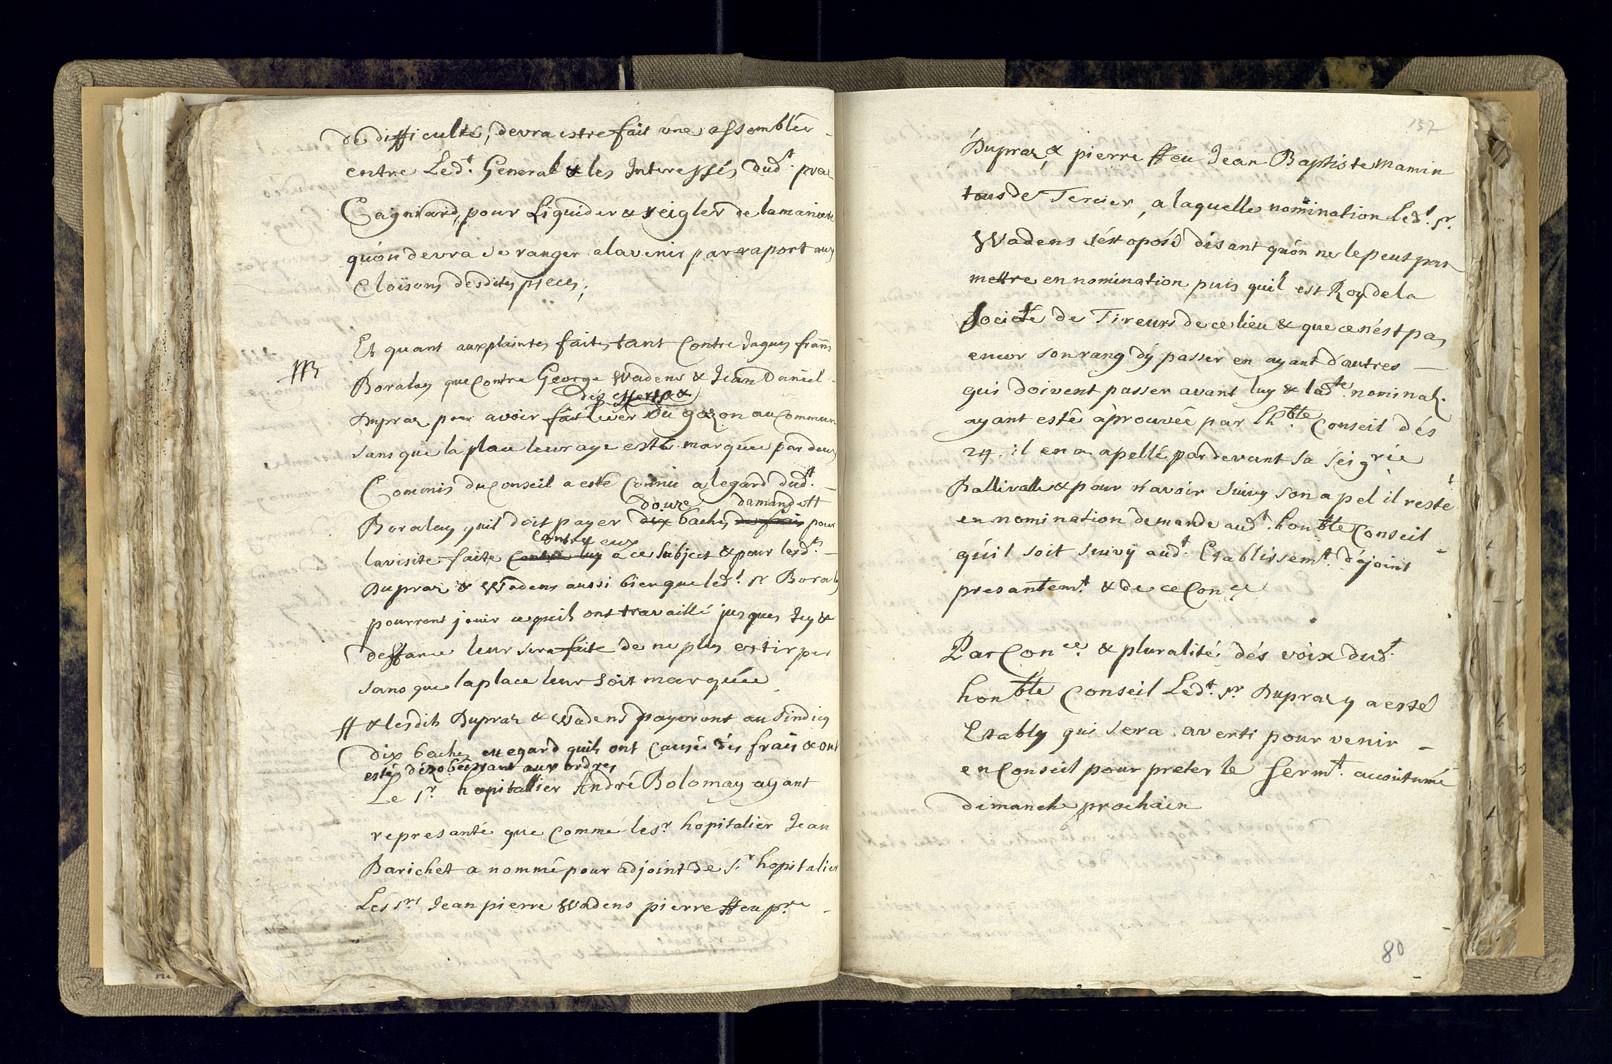 de difficulté, devra estre fait une assemblée
entre Led.t General & les Interessés dud.t pra
Cagniard, pour Liquider & reigler de la maniere
qu'on devra se ranger a lavenir par raport aux
Cloisons desdites pieces;
Et quant aux plaintes faites tant Contre Jaques franç
Boralay que Contre George Wadens & Jean Daniel
Dupraz pour avoir fait lever du gazon au Commun
sans que la place leur aye esté marquée par deux
Commis du Conseil a esté Connu a legard dud.t
douze demandott
Boralay quil doit payer dix baches de frais pour
contre eux
la visite faite contre luy a ce Subject & pour lesd.ts
Dupraz & Wadens aussi bien que led.t Sr Boralay
pourront jouir ce quils ont travaillé jusques Icy &
deffance leur sera faite de ne plus extirper
sans que la place leur soit marquée
ff & lesdits Dupraz & Wadens payeront au Sindicq
dix baches eu egard quils ont Causé dès frais & ont
estés dézobéissant aux ordres
Le Sr hopitallier André Bolomay ayant
representé que Comme le Sr hopitalier Jean
Barichet a nommé pour adjoint de Sr hopitalier
Les Srs Jean pierre Wadens pierre ffeu p.re
157
Dupraz & pierre ffeu Jean Baptiste Mamin
tous de Tercier, a laquelle nomination Led.t Sr
Wadens s'est oposé disant qu'on ne le peut pas
mettre en nomination puis quil est Roy de la
Societé de Tireurs de ce lieu & que ce n'est pas
encor son rang d'y passer en ayant d'autres
qui doivent passer avant luy & lad.te nominat.
ayant estê àprouvée par Lh.ble Conseil dès
24. il en a apellé pardevant Sa Seigrie
Ballivalle & pour n'avoir suivy son apel il reste
en nomination demande aud.t hon.ble Conseil
qu'il soit suivy aud.t Etablissem.t d'ajoint
presantem.t & de ce Con.ce
Par Con.ce & pluralité dès voix dud.t
hon.ble Conseil Led.t Sr Dupraz y a esté
Etably qui sera averti pour venir
en Conseil pour preter le serm.t accoutumé
dimanche prochain
80